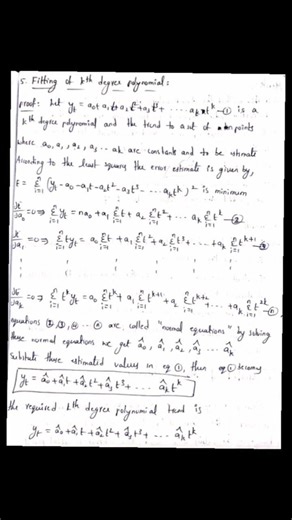 5. Fitting of kth degree polynomial:
proof: Let yt = a0 + a1t + a2t² + a3t³ + ... akt^k —① is a
kth degree polynomial and the trend to a set of n points
where a0, a1, a2, a3 ... ak are constants and to be estimate
According to the least square the error estimate is given by,
E = Σ(i=1 to n) (yt - a0 - a1t - a2t² - a3t³ - ... akt^k)² is minimum
∂E/∂a0 = 0 ⇒ Σ(i=1 to n) yt = na0 + a1 Σ(i=1 to n) t + a2 Σ(i=1 to n) t² + ... ak Σ(i=1 to n) t^k —②
∂E/∂a1 = 0 ⇒ Σ(i=1 to n) tyt = a0 Σ(i=1 to n) t + a1 Σ(i=1 to n) t² + a2 Σ(i=1 to n) t³ + ... + ak Σ(i=1 to n) t^k+1 —③
∂E/∂ak = 0 ⇒ Σ(i=1 to n) t^k yt = a0 Σ(i=1 to n) t^k + a1 Σ(i=1 to n) t^k+1 + a2 Σ(i=1 to n) t^k+2 + ... + ak Σ(i=1 to n) t^2k —ⓝ
equations ②, ③, ④ ... ⓝ are called "normal equations" by solving
these normal equations we get â0, â1, â2, â3 ... âk
Substitute these estimated values in eq ①, then eq ① becomes
ŷt = â0 + â1t + â2t² + â3t³ + ... âkt^k
the required kth degree polynomial trend is
yt = â0 + â1t + â2t² + â3t³ + ... âkt^k